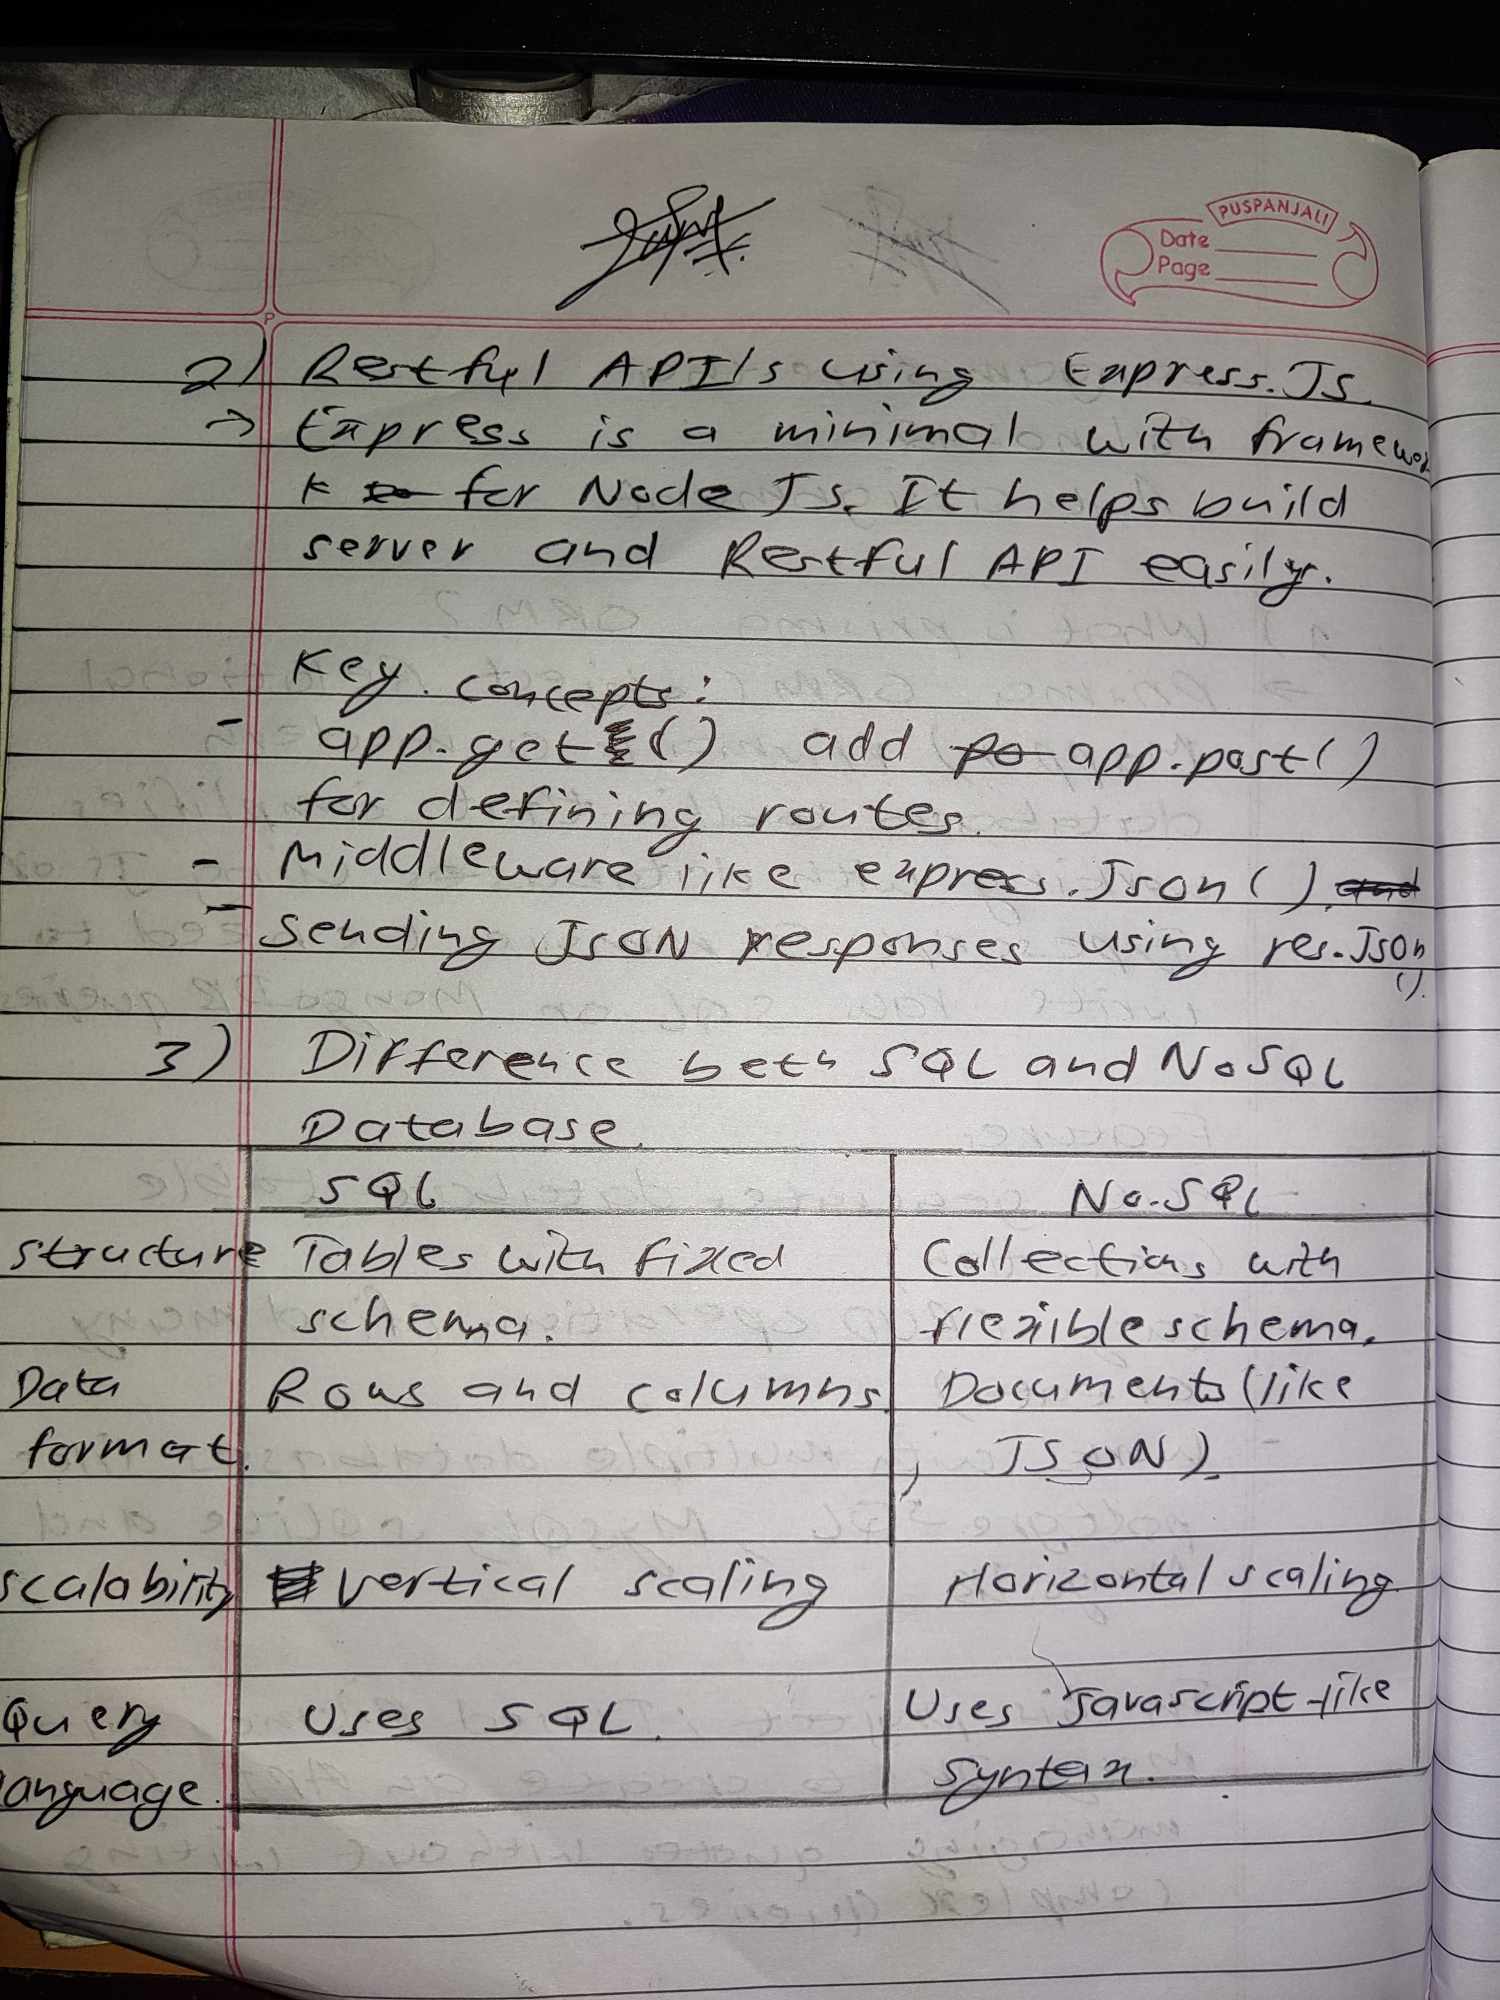 PUSPANJALI
Date
Page
P
2) Restful API's using Express.Js.
→ Express is a minimal with framewor
k for Node Js. It helps build
server and Restful API easily.
Key concepts:
- app.get() add app.post()
for defining routes.
- Middleware like express.Json(),
- Sending JSON responses using res.Json
().
3) Difference betn SQL and NoSQL
Database.
SQL No.SQL
structure Tables with fixed Collections with
schema. flexible schema.
Data Rows and columns. Documents (like
format. JSON).
scalability Vertical scaling Horizontal scaling
Query Uses SQL. Uses Javascript-like
language. syntax.